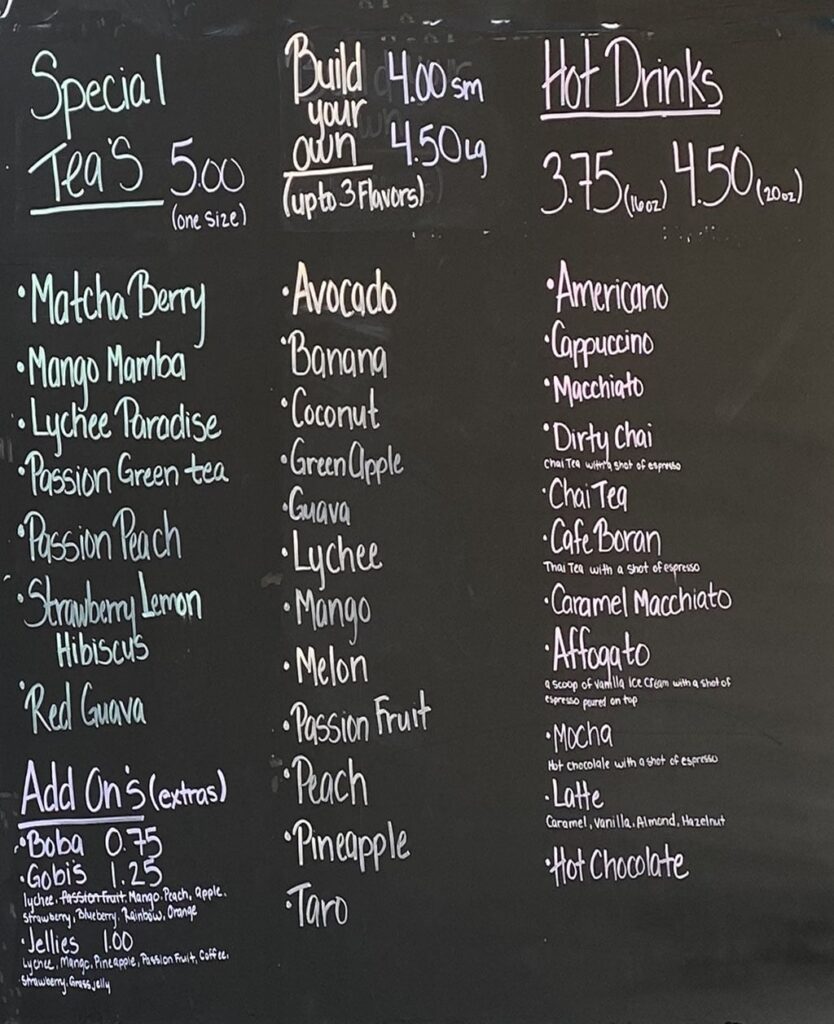 Special
Tea's 5.00
(one size)
•Matcha Berry
•Mango Mamba
•Lychee Paradise
•Passion Green tea
•Passion Peach
•Strawberry Lemon
Hibiscus
•Red Guava
Add On's (extras)
•Boba 0.75
•Gobi's 1.25
lychee, Passion Fruit, Mango, Peach, apple,
Strawberry, Blueberry, Rainbow, Orange
•Jellies 1.00
Lychee, Mango, Pineapple, Passion Fruit, Coffee,
Strawberry, Grass jelly
Build 4.00 sm
your
own 4.50 Lg
(up to 3 Flavors)
•Avocado
•Banana
•Coconut
•Green Apple
•Guava
•Lychee
•Mango
•Melon
•Passion Fruit
•Peach
•Pineapple
•Taro
Hot Drinks
3.75 (16oz) 4.50 (20oz)
•Americano
•Cappuccino
•Macchiato
•Dirty Chai
Chai Tea with a shot of espresso
•Chai Tea
•Cafe Boran
Thai Tea with a shot of espresso
•Caramel Macchiato
•Affogato
a scoop of vanilla ice cream with a shot of
espresso poured on top
•Mocha
Hot chocolate with a shot of espresso
•Latte
Caramel, Vanilla, Almond, Hazelnut
•Hot Chocolate